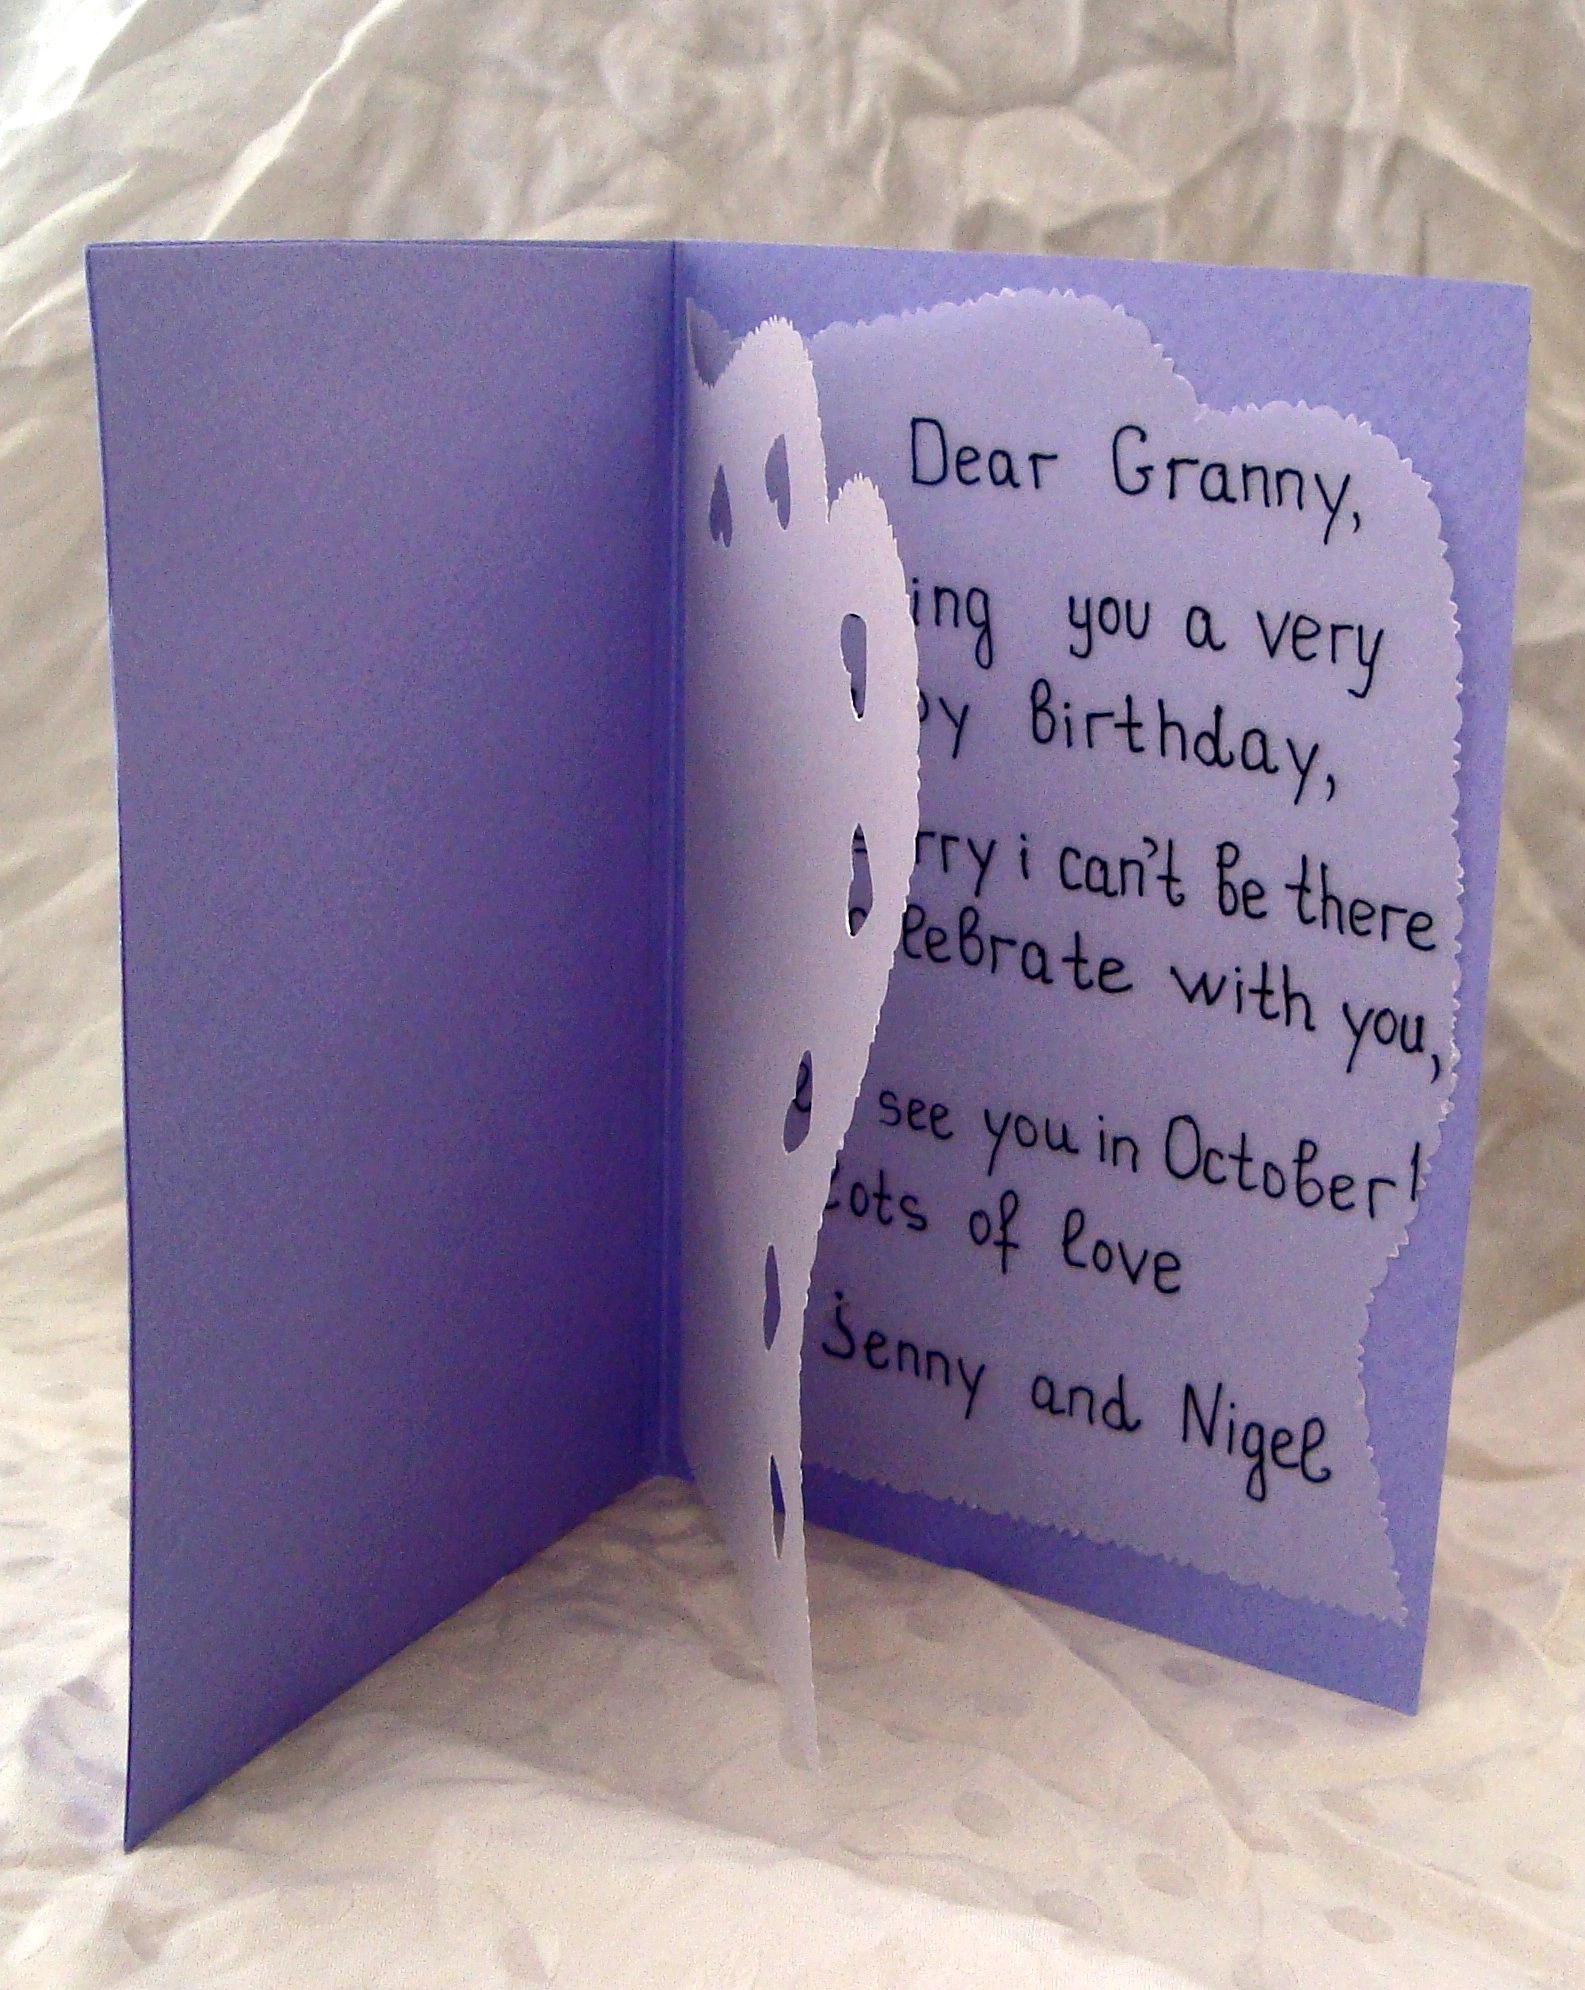 Dear Granny,
you a very
Birthday,
i can't be there
celebrate with you,
see you in October!
Lots of love
Jenny and Nigel